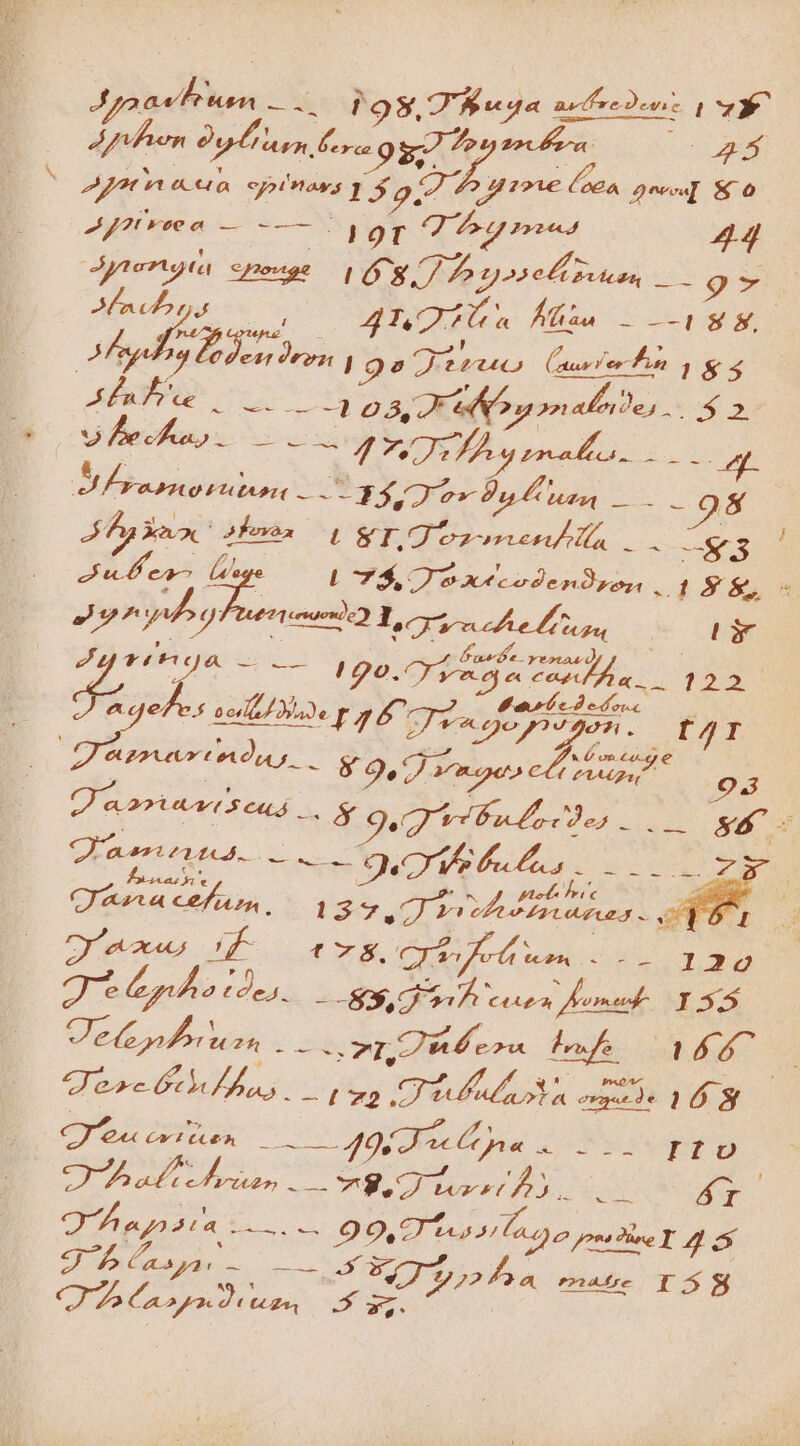 Spartium -- 198, Thuya arbre de vie 17
Sphondylium, berce 98, Thymbra 45
Spinacia epinars 159, Thymelœa garou 80
Spiroea ---- 191 Thymus 44
Spongia eponge 168, Thysselinum -- 97
Stachys 41, Tilia tiliau --- 188,
Staphylodendron 190 Tinus laurier tin 185
Statice ---- 103, Tithymaloides -- 52
Stechas ---- 47, Tithymalus ---- 4
Stramonium --- 15, Tordylium --- 98
Styrax storax 181, Tormentilla -- 83
Suber liege 175, Toxicodendron - 188,
Symphytum consoude 21, Trachelium 18
barbe renard
Syringa -- 190. Traga cantha -- 122
barbe de
Tagetes œillet d'Inde 146 Tragopogon. 141
Tamarindus -- 89, Trago selinum 93
Tamariscus -- 89, Tribuloides --- 86
Tamnus ---- 9, Tribulus ---- 78
Tanacetum. 137, Trichomanes - 161
Taxus if 178. Trifolium --- 120
Telephoides. -- 85, Triticum froment 155
Telephium ---- 71, Tubera trufe 166
Terebinthus -- 172, Tubularia orgue de mer 168
Teucrium --- 49, Tulipa ---- 110
Thalictrum -- 78, Turritis -- 61
Thapsia ---- 99, Tussilago pas d'ane 145
Thlaspi --- 58, Typha matte 158
Thlaspidium 58,